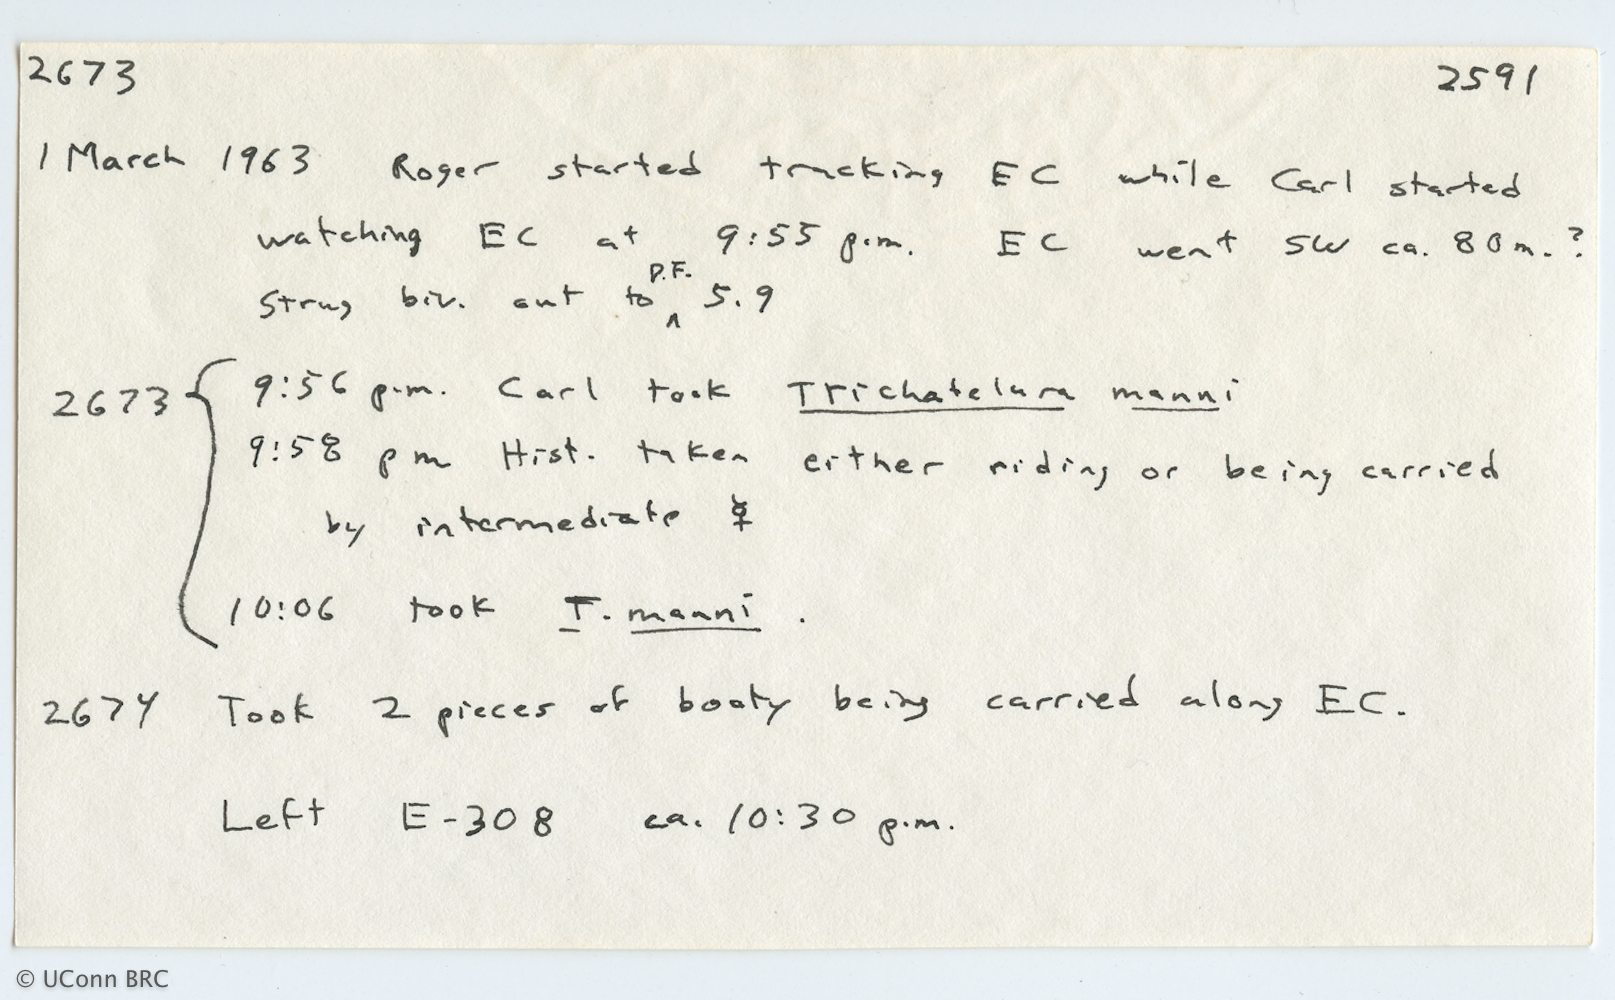 2673 2591
1 March 1963 Roger started tracking EC while Carl started
watching EC at 9:55 p.m. EC went SW ca. 80 m.?
Strug biv. out to P.F. 5.9
2673 9:56 p.m. Carl took Trichatelura manni
9:58 pm Hist. taken either riding or being carried
by intermediate ☿
10:06 took T. manni.
2674 Took 2 pieces of booty being carried along EC.
Left E-308 ca. 10:30 p.m.
© UConn BRC